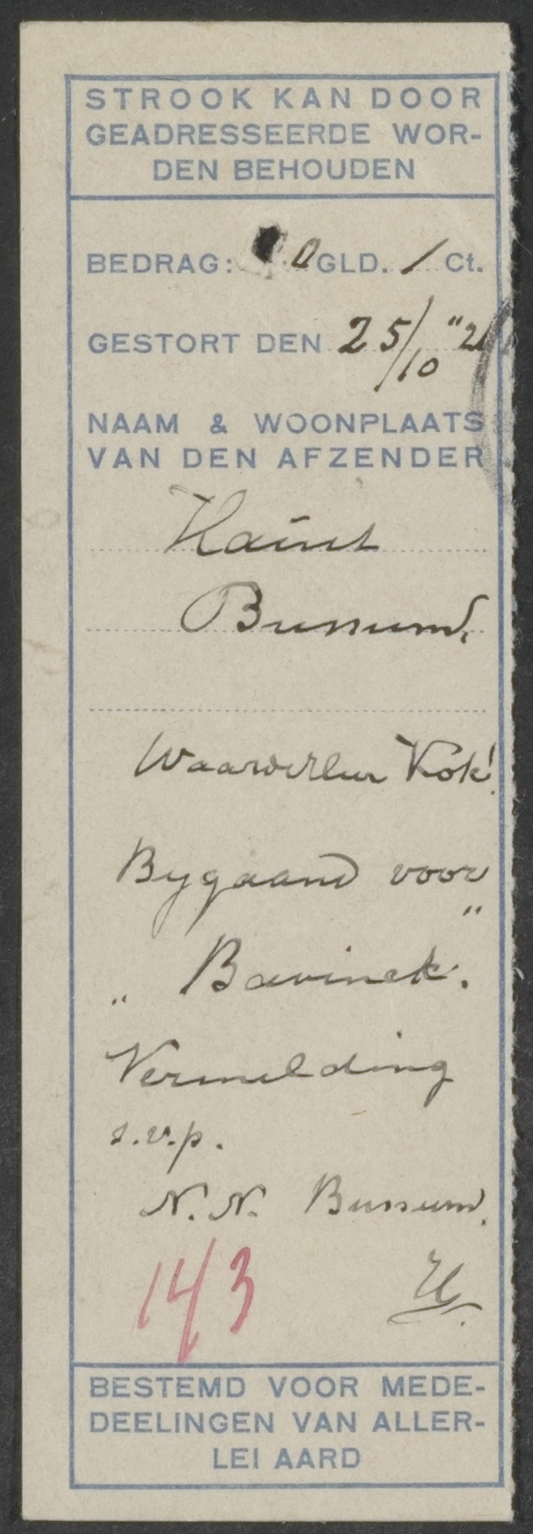 STROOK KAN DOOR
GEADRESSEERDE WOR-
DEN BEHOUDEN
BEDRAG: 0 GLD. / Ct.
GESTORT DEN 25/10 "21
NAAM & WOONPLAATS
VAN DEN AFZENDER
Bussum.
Kok!
Bygaand voor
„ Bavinck".
Vermelding
s.v.p.
N.N. Bussum.
14/3
BESTEMD VOOR MEDE-
DEELINGEN VAN ALLER-
LEI AARD